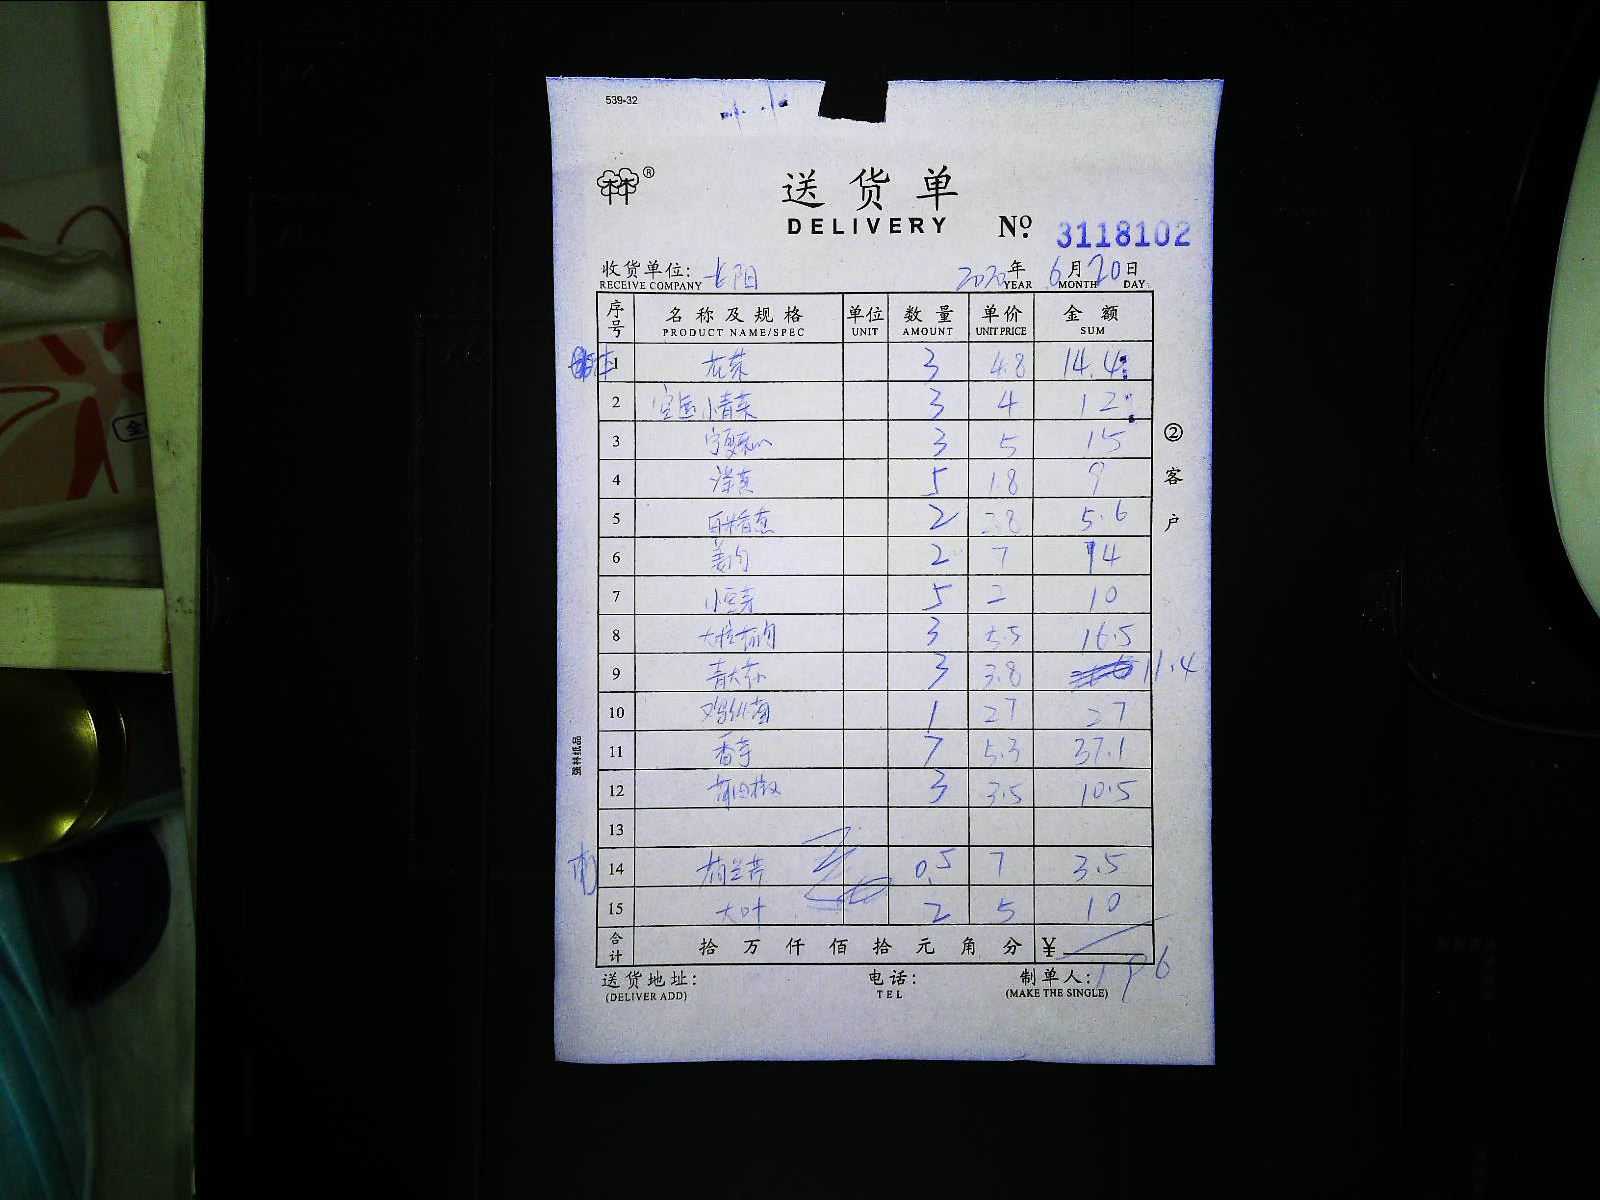 539-32
林®
送货单
DELIVERY No. 3118102
收货单位: 长阳 2020年 6月20日
RECEIVE COMPANY YEAR MONTH DAY
序号 名称及规格 单位 数量 单价 金额
PRODUCT NAME/SPEC UNIT AMOUNT UNIT PRICE SUM
1 花菜 3 4.8 14.4
2 小青菜 3 4 12
3 宁夏菜心 3 5 15
4 3 5 1.8 9
5 香葱 2 2.8 5.6
6 姜肉 2 7 14
7 小豆芽 5 2 10
8 3 5.5 16.5
9 青大 3 3.8 11.4
10 鸡枞菌 1 27 27
11 香芋 7 5.3 37.1
12 3 3.5 10.5
13
14 荷兰芹 0.5 7 3.5
15 大叶 2 5 10
合计 拾万仟佰拾元角分 ¥
196
送货地址: 电话: 制单人:
(DELIVER ADD) TEL (MAKE THE SINGLE)
②客户
强林纸品